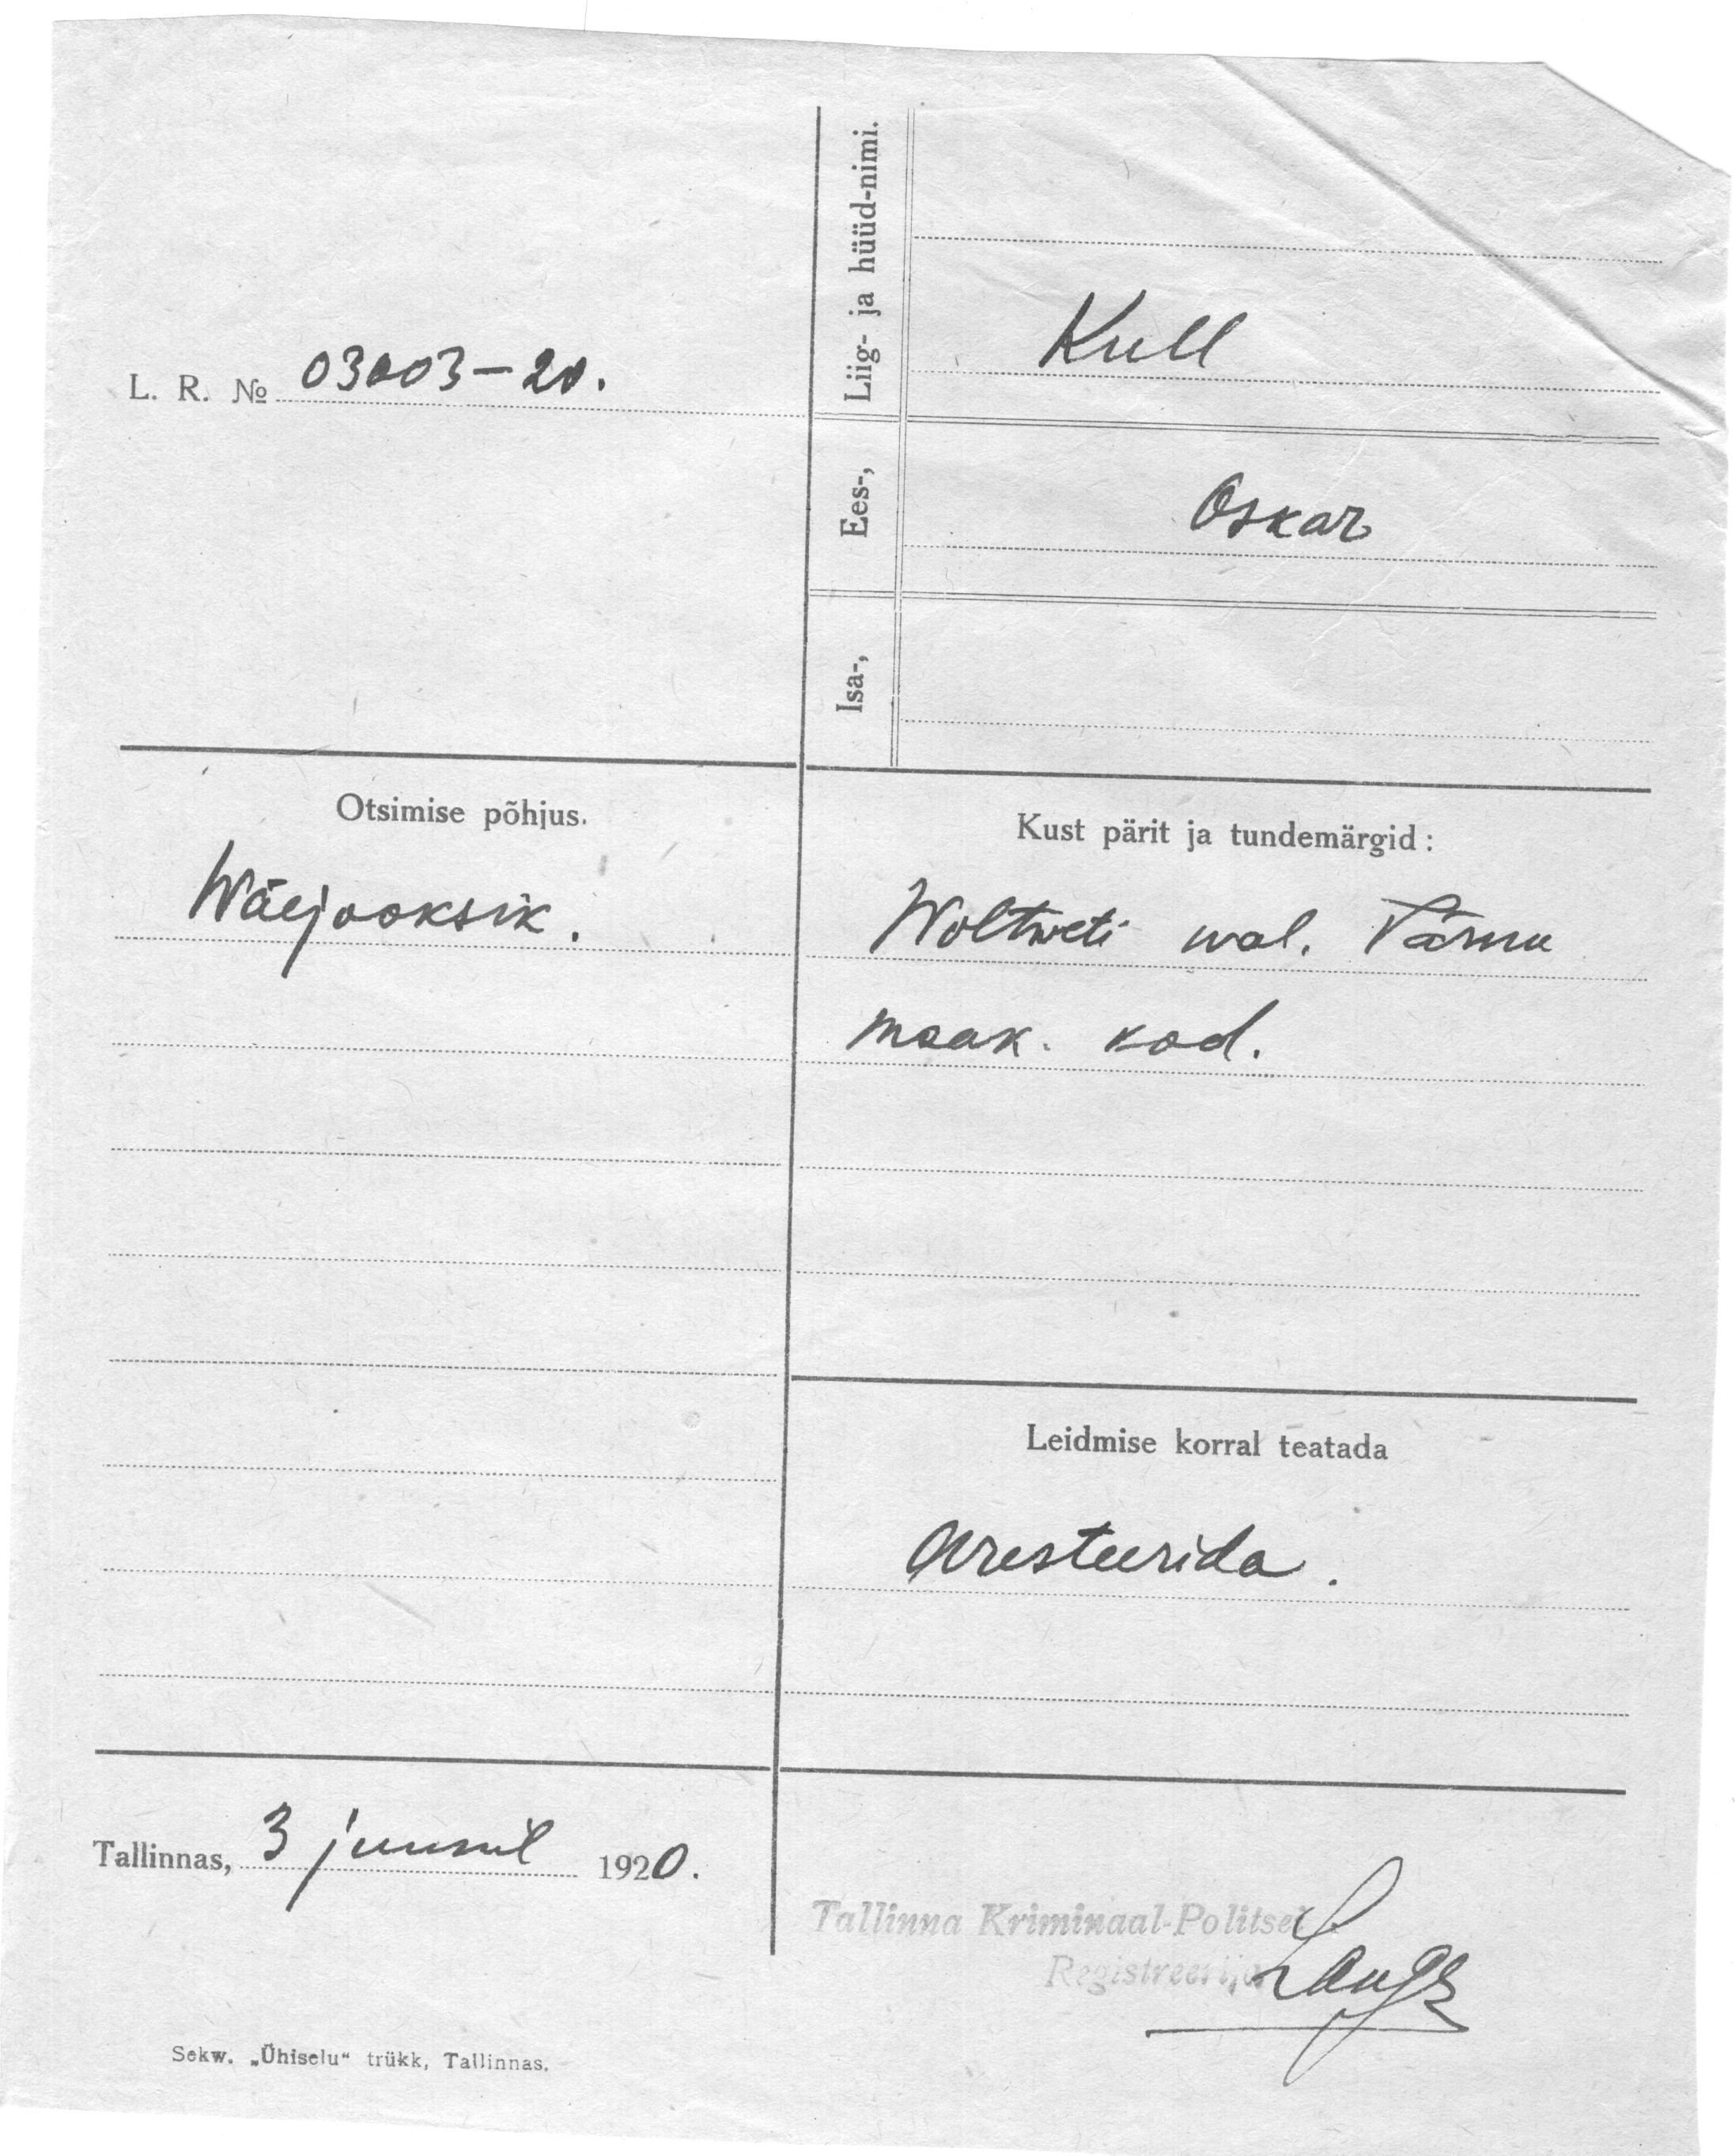 L. R. № 03003-20.
Liig- ja hüüd-nimi.
Kull
Ees-,
Oskar
Isa-,
Otsimise põhjus.
Wäejooksik.
Kust pärit ja tundemärgid:
Woltweti wal. Pärnu
maak. kod.
Leidmise korral teatada
Aresteerida.
Tallinnas, 3 juunil 1920.
Tallinna Kriminaal-Politsei
Registreerija
Sekw. „Ühiselu“ trükk, Tallinnas.